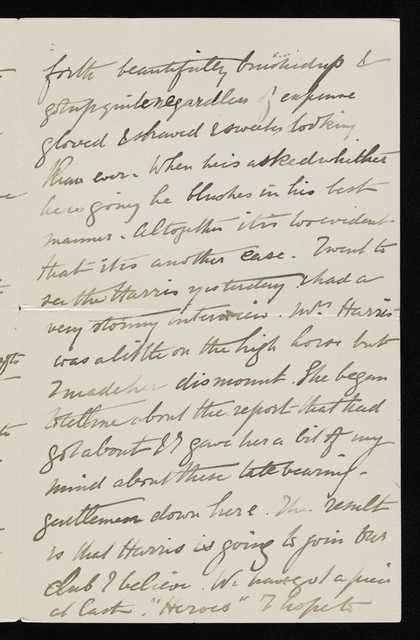 forth beautifully brushed up &
got up quite regardless of expense
gloved & shaved & sweeter looking
than ever. When he is asked whither
he is going he blushes in his best
manner. Altogether it is too evident
that it is another case. I went to
see the Harris yesterday & had a
very stormy interview. Mrs Harris
was a little on the high horse but
I made her dismount. She began
to tell me about the report that had
got about & I gave her a bit of my
mind about these talebearing
gentlemen down here. The result
is that Harris is going to join our
club I believe. We have got a piece
at last. "Heroes" I hope to